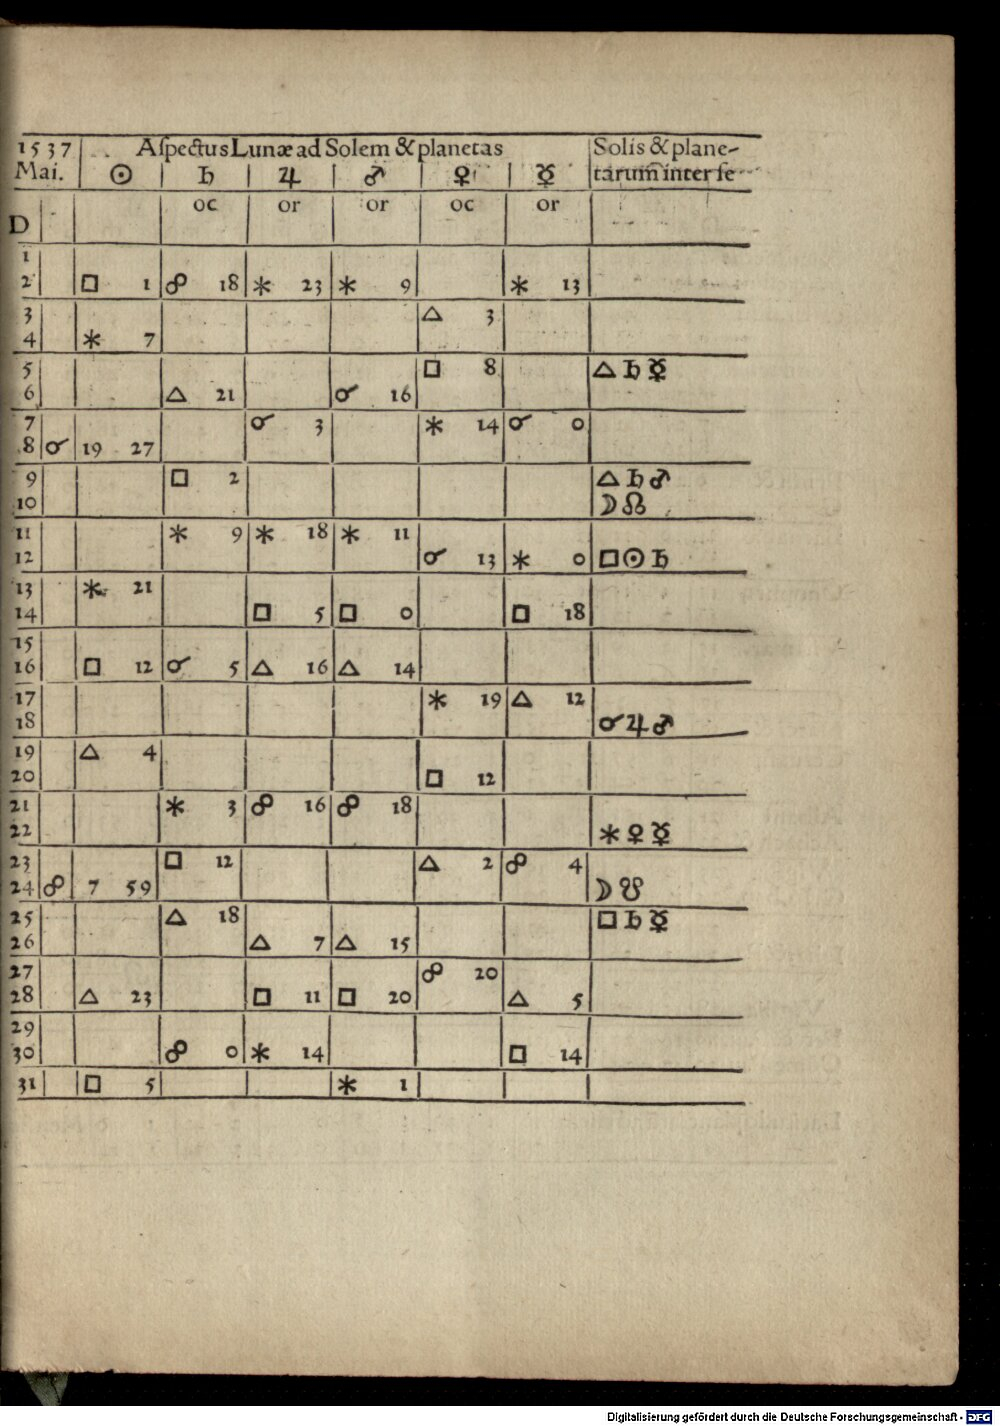 1537 Aſpectus Lunæ ad Solem & planetas Solis & plane-
Mai. ☉ ♄ ♃ ♂ ♀ ☿ tarum inter ſe
oc or or oc or
D
1
2 □ 1 ☍ 18 ⚹ 23 ⚹ 9 ⚹ 13
3 △ 3
4 ⚹ 7
5 □ 8 △ ♄ ☿
6 △ 21 ☌ 16
7 ☌ 3 ⚹ 14 ☌ 0
8 ☌ 19 27
9 □ 2 △ ♄ ♂
10 ☽ ☊
11 ⚹ 9 ⚹ 18 ⚹ 11
12 ☌ 13 ⚹ 0 □ ☉ ♄
13 ⚹ 21
14 □ 5 □ 0 □ 18
15
16 □ 12 ☌ 5 △ 16 △ 14
17 ⚹ 19 △ 12
18 ☌ ♃ ♂
19 △ 4
20 □ 12
21 ⚹ 3 ☍ 16 ☍ 18
22 ⚹ ♀ ☿
23 □ 12 △ 2 ☍ 4
24 ☍ 7 59 ☽ ☋
25 △ 18 □ ♄ ☿
26 △ 7 △ 15
27 ☍ 20
28 △ 23 □ 11 □ 20 △ 5
29
30 ☍ 0 ⚹ 14 □ 14
31 □ 5 ⚹ 1
Digitalisierung gefördert durch die Deutsche Forschungsgemeinschaft - DFG